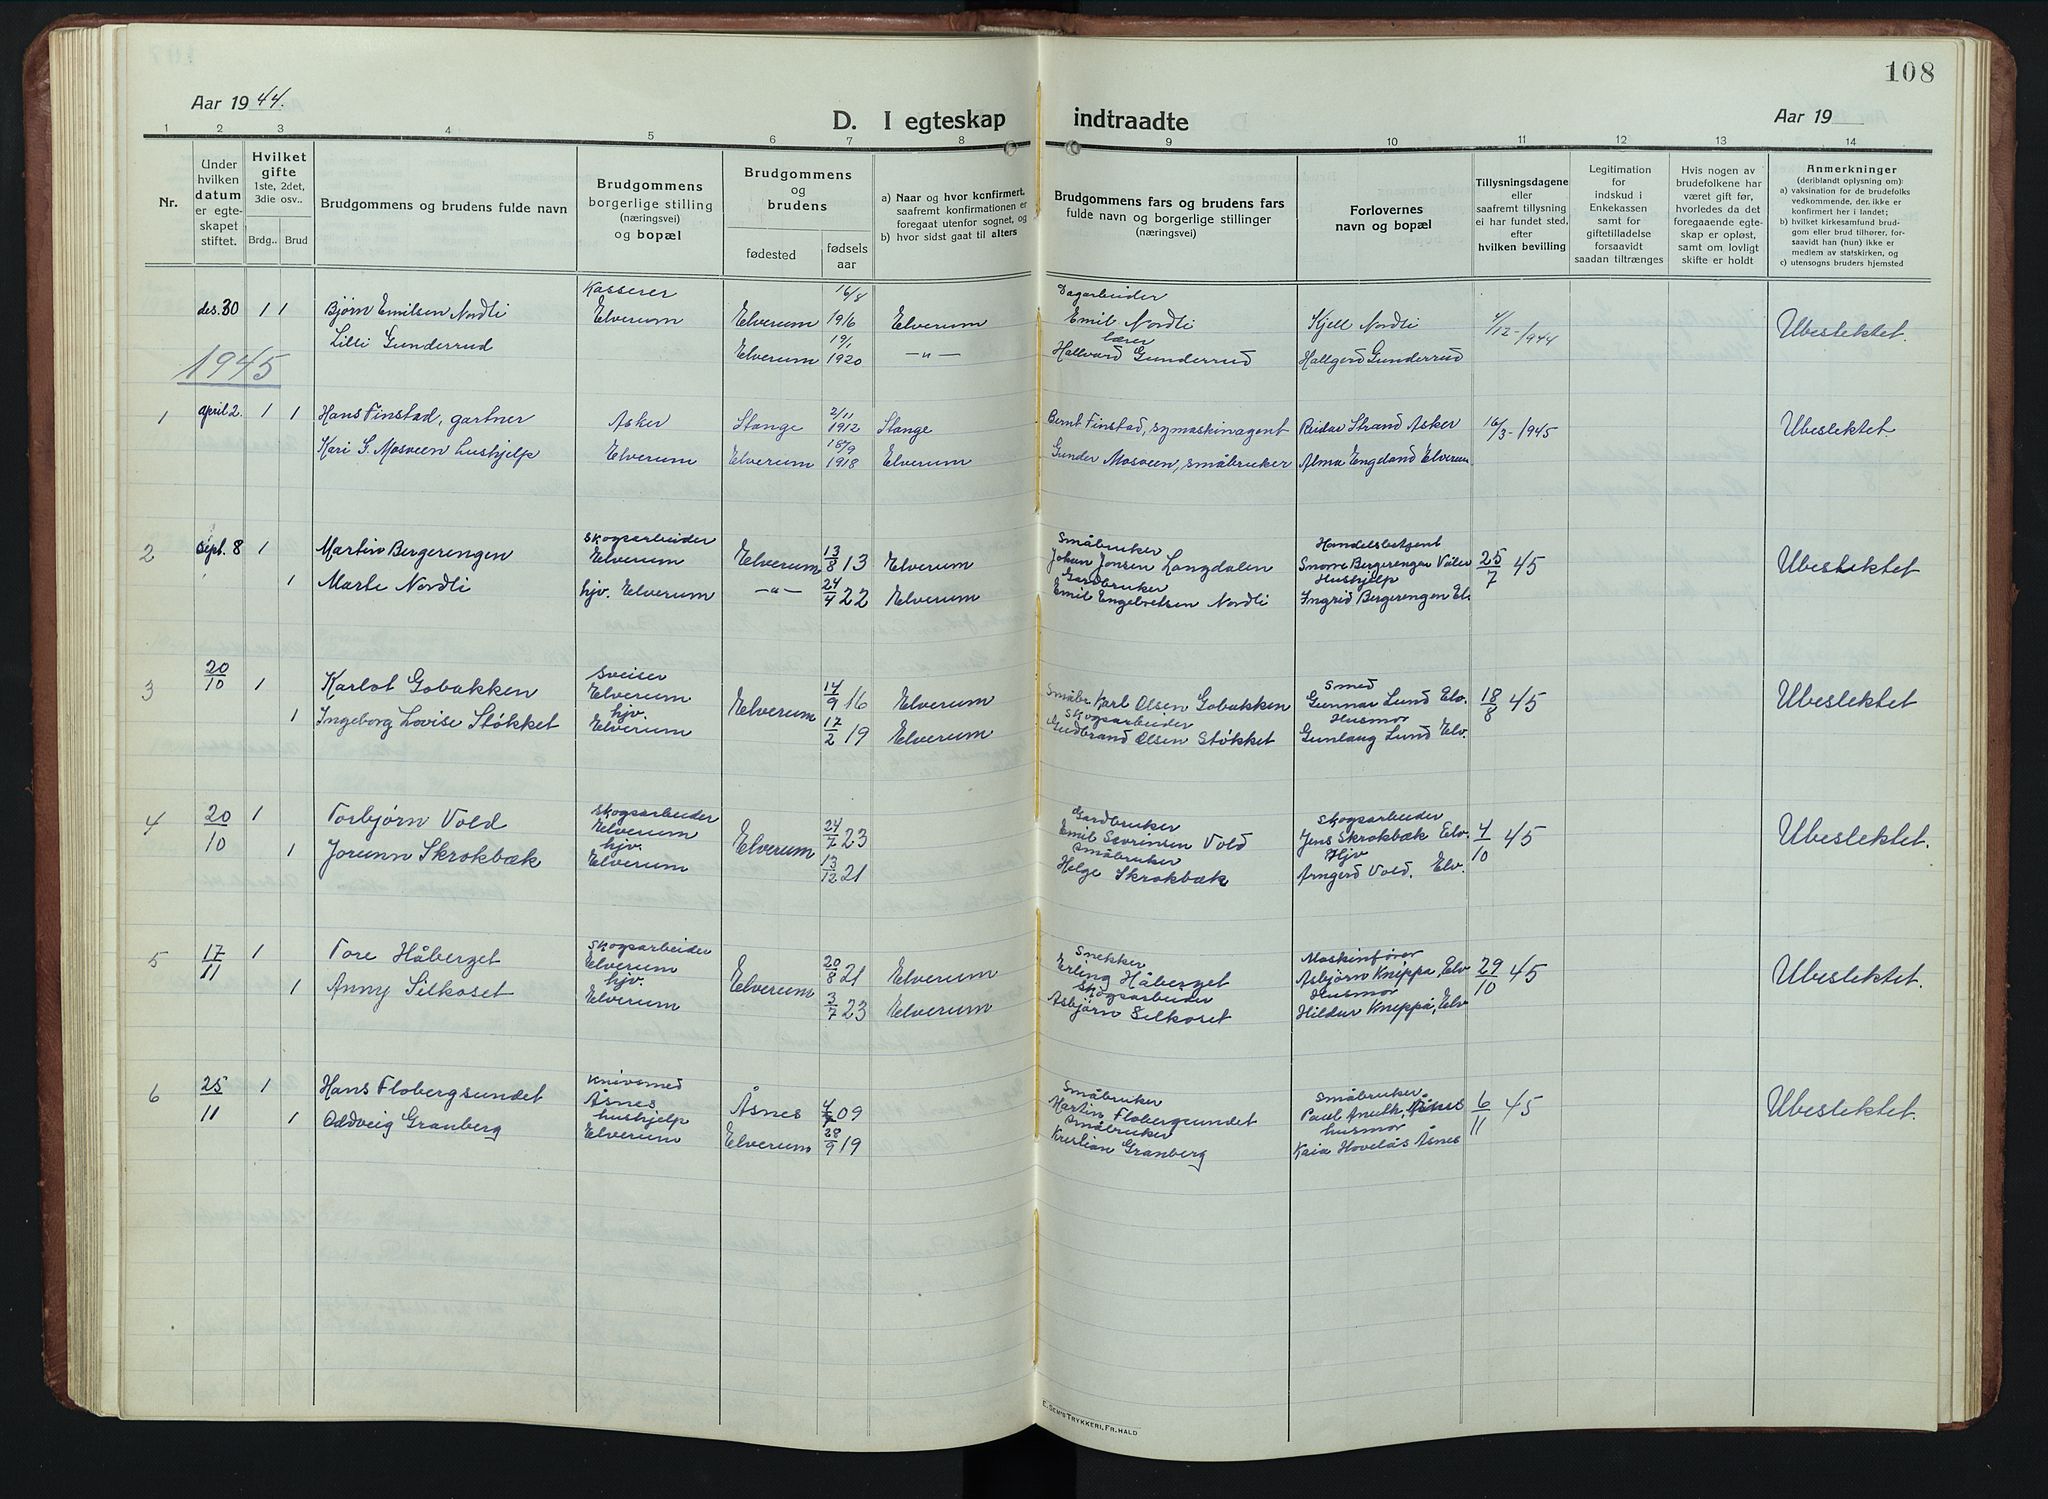 108
Aar 1944.
D. I egteskap indtraadte
Aar 19
1 2 3 4 5 6 7 8 9 10 11 12 13 14
Nr.
Under hvilken datum er egte-skapet stiftet.
Hvilket gifte
1ste, 2det, 3die osv..
Brdg.. Brud
Brudgommens og brudens fulde navn
Brudgommens borgerlige stilling (næringsvei) og bopæl
Brudgommens og brudens
fødested
fødsels aar
a) Naar og hvor konfirmert, saafremt konfirmationen er foregaat utenfor sognet, og
b) hvor sidst gaat til alters
Brudgommens fars og brudens fars fulde navn og borgerlige stillinger (næringsvei)
Forlovernes navn og bopæl
Tillysningsdagene eller saafremt tillysning ei har fundet sted, efter hvilken bevilling
Legitimation for indskud i Enkekassen samt for giftetilladelse forsaavidt saadan tiltrænges
Hvis nogen av brudefolkene har været gift før, hvorledes da det foregaaende egte-skap er opløst, samt om lovlig skifte er holdt
Anmerkninger
(deriblandt oplysning om):
a) vaksination for de brudefolks vedkommende, der ikke er konfirmert her i landet;
b) hvilket kirkesamfund brud-gom eller brud tilhører, for-saavidt han (hun) ikke er medlem av statskirken, og
c) utensogns bruders hjemsted
Kasserer 16/8 Dagarbeider
des. 30 1 1 Bjørn Emilsen Nordli Elverum Elverum 1916 Elverum Emil Nordli Kjell Nordli 4/12-1944 Ubeslektet.
19/1 lærer
Lilli Gunderrud Elverum 1920 —"— Hallvard Gunderrud Hallgerd Gunderrud
1945
1 april 2. 1 1 Hans Finstad, gartner Asker Stange 2/11 1912 Stange Bernt Finstad, symaskinagent Reidar Strand Asker 16/3-1945 Ubeslektet.
Kari S. Mosveen hushjelp Elverum Elverum 18/9 1918 Elverum Gunder Mosveen, småbruker Alma Engeland Elverum
Skogsarbeider Småbruker Handelsbetjent
2 Sept. 8 1 Martin Bergerengen Elverum Elverum 13/8 13 Elverum Johan Jonsen Langdalen Snorre Bergerengen Våler 25/7 45 Ubeslektet
Gardbruker Hushjelp
1 Marte Nordli hjv. Elverum —"— 24/4 22 Elverum Emil Engebretsen Nordli Ingrid Bergerengen El.
Sveiser Smed
3 20/10 1 Karlot Gobakken Elverum Elverum 14/9 16 Elverum Småbr. Karl Olsen Gobakken Gunnar Lund Elv. 18/8 45 Ubeslektet
hjv. Skogsarbeider Husmor
1 Ingeborg Lovise Støkket Elverum 17/2 19 Elverum Gudbrand Olsen Støkket Gunlaug Lund Elv.
Skogsarbeider Gardbruker Skogsarbeider
4 20/10 1 Torbjørn Vold Elverum Elverum 24/7 23 Emil Severinsen Vold Jens Skrokbæk Elv. 4/10 45 Ubeslektet.
hjv. Småbruker Hjv
1 Jorunn Skrokbæk Elverum 13/12 21 Helge Skrokbæk Arngerd Vold. Elv.
Skogsarbeider Snekker Maskinfører
5 17/11 1 Tore Håberget Elverum Elverum 20/8 21 Elverum Erling Håberget Asbjørn Knippa, Elv 29/10 45 Ubeslektet.
hjv. Skogsarbeider Husmor
1 Anny Silkoset Elverum 3/7 23 Elverum Asbjørn Silkoset Hildur Knippå, Elv
Knivsmed Småbruker Småbruker
6 25/11 1 Hans Flobergsundet Åsnes Åsnes 09 Martin Flobergsundet Paul 6/11 45 Ubeslektet.
hushjelp Småbruker husmor
1 Oddveig Granberg Elverum Elverum 28/9 19 Kristian Granberg Kaia Hovelås Åsnes
E. SEM'S TRYKKERI, FR. HALD